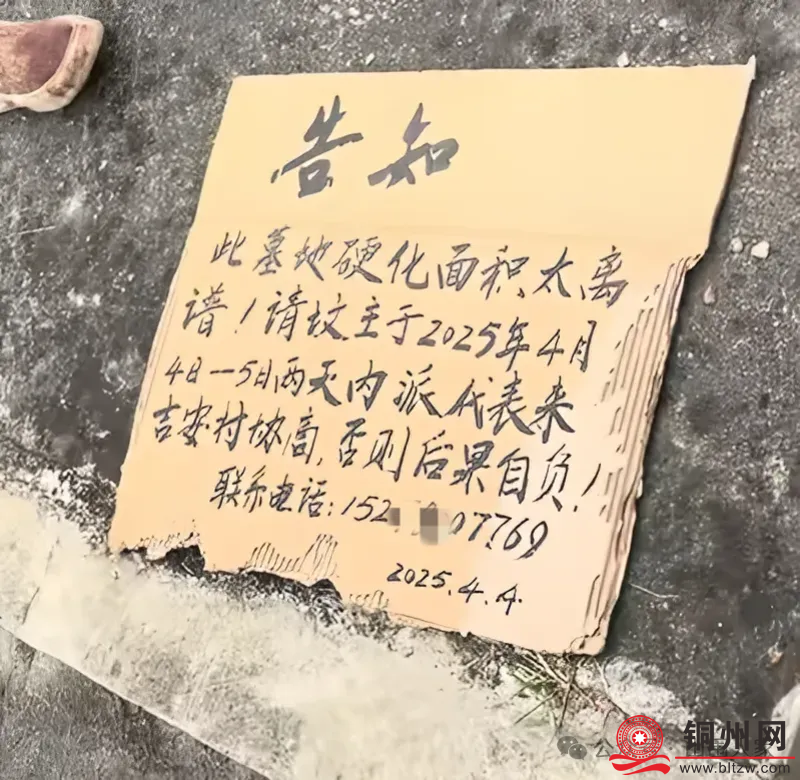 告知
此墓地硬化面积太离
谱！请坟主于2025年4月
4日一5日两天内派代表来
吉安村协商，否则后果自负！
联系电话：152 07769
2025.4.4.
公
铜州网
www.bltzw.com